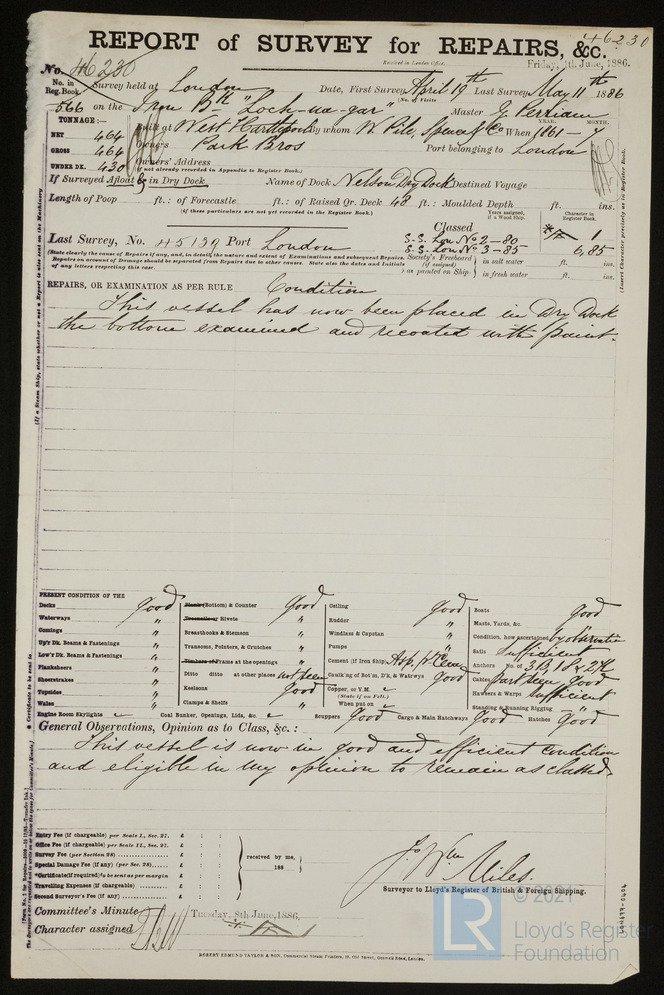 46230
REPORT of SURVEY for REPAIRS, &c.
Received in London Office. Friday, 4th June, 1886.
No. 46230
No. in Reg. Book. Survey held at London Date, First Survey April 19th Last Survey May 11th 1886
(No. of Visits
566 on the Iron Bk "Loch-na-gar" Master
TONNAGE:— YEAR. MONTH.
NET 464 Built at West Hartlepool By whom W. Pile, Spence & Co When 1861 - 7
GROSS 464 Owners Park Bros Port belonging to London
UNDER DK. 430 Owners' Address
(if not already recorded in Appendix to Register Book.)
If Surveyed Afloat or in Dry Dock Name of Dock Nelson Dry Dock Destined Voyage
Length of Poop ft.: of Forecastle ft.: of Raised Qr. Deck 48 ft.: Moulded Depth ft. ins.
(if these particulars are not yet recorded in the Register Book.)
Years assigned, if a Wood Ship. Character in Register Book.
Classed
Last Survey, No. 45139 Port London
S.S. Lon No 2-80
S.S. Lon No 3-85
1
6,85
(State clearly the cause of Repairs if any, and, in detail, the nature and extent of Examinations and subsequent Repairs.
Repairs on account of Damage should be separated from Repairs due to other causes. State also the dates and Initials
of any letters respecting this case.
Society's Freeboard (if assigned) as painted on Ship
in salt water ft. ins.
in fresh water ft. ins.
REPAIRS, OR EXAMINATION AS PER RULE Condition
This vessel has now been placed in Dry Dock
the bottom examined and recoated with paint.
PRESENT CONDITION OF THE
Decks good
Waterways "
Comings "
Up'r Dk. Beams & Fastenings "
Low'r Dk. Beams & Fastenings "
Planksheers "
Sheerstrakes "
Topsides "
Wales "
Plank (Bottom) & Counter good
Treenails or Rivets "
Breasthooks & Stemson "
Transoms, Pointers, & Crutches "
Timbers of Frame at the openings "
Ditto ditto at other places not seen
Keelsons good
Clamps & Shelfs "
Ceiling good
Rudder "
Windlass & Capstan "
Pumps "
Cement (if Iron Ship)
Caulk'ng of Bot'm, D'k, & Wat'rwys good
Copper, or Y.M.
(State if on Felt.)
When put on
Boats good
Masts, Yards, &c. "
Condition, how ascertained by observation
Sails Sufficient
Anchors No. of 3B, 1S & 2K
Cables Part seen, good
Hawsers & Warps sufficient
Standing & Running Rigging good
Engine Room Skylights Coal Bunker, Openings, Lids, &c. Scuppers good Cargo & Main Hatchways good Hatches good
General Observations, Opinion as to Class, &c.:
This vessel is now in good and efficient condition
and eligible in my opinion to remain as classed.
Entry Fee (if chargeable) per Scale I., Sec. 27. £ : :
Office Fee (if chargeable) per Scale II., Sec. 27. £ : :
Survey Fee (per Section 28) £ : :
Special Damage Fee (if any) (per Sec. 28) £ : :
*Certificate (if required) to be sent as per margin
Travelling Expenses (if chargeable) £ : :
Second Surveyor's Fee (if any) £ : :
received by me,
188
Miles.
Surveyor to Lloyd's Register of British & Foreign Shipping.
Committee's Minute Tuesday, 8th June, 1886.
Character assigned
ROBERT EDMUND TAYLOR & SON, Commercial Steam Printers, 19, Old Street, Goswell Road, London.
© 2021
LR
Lloyd's Register
Foundation